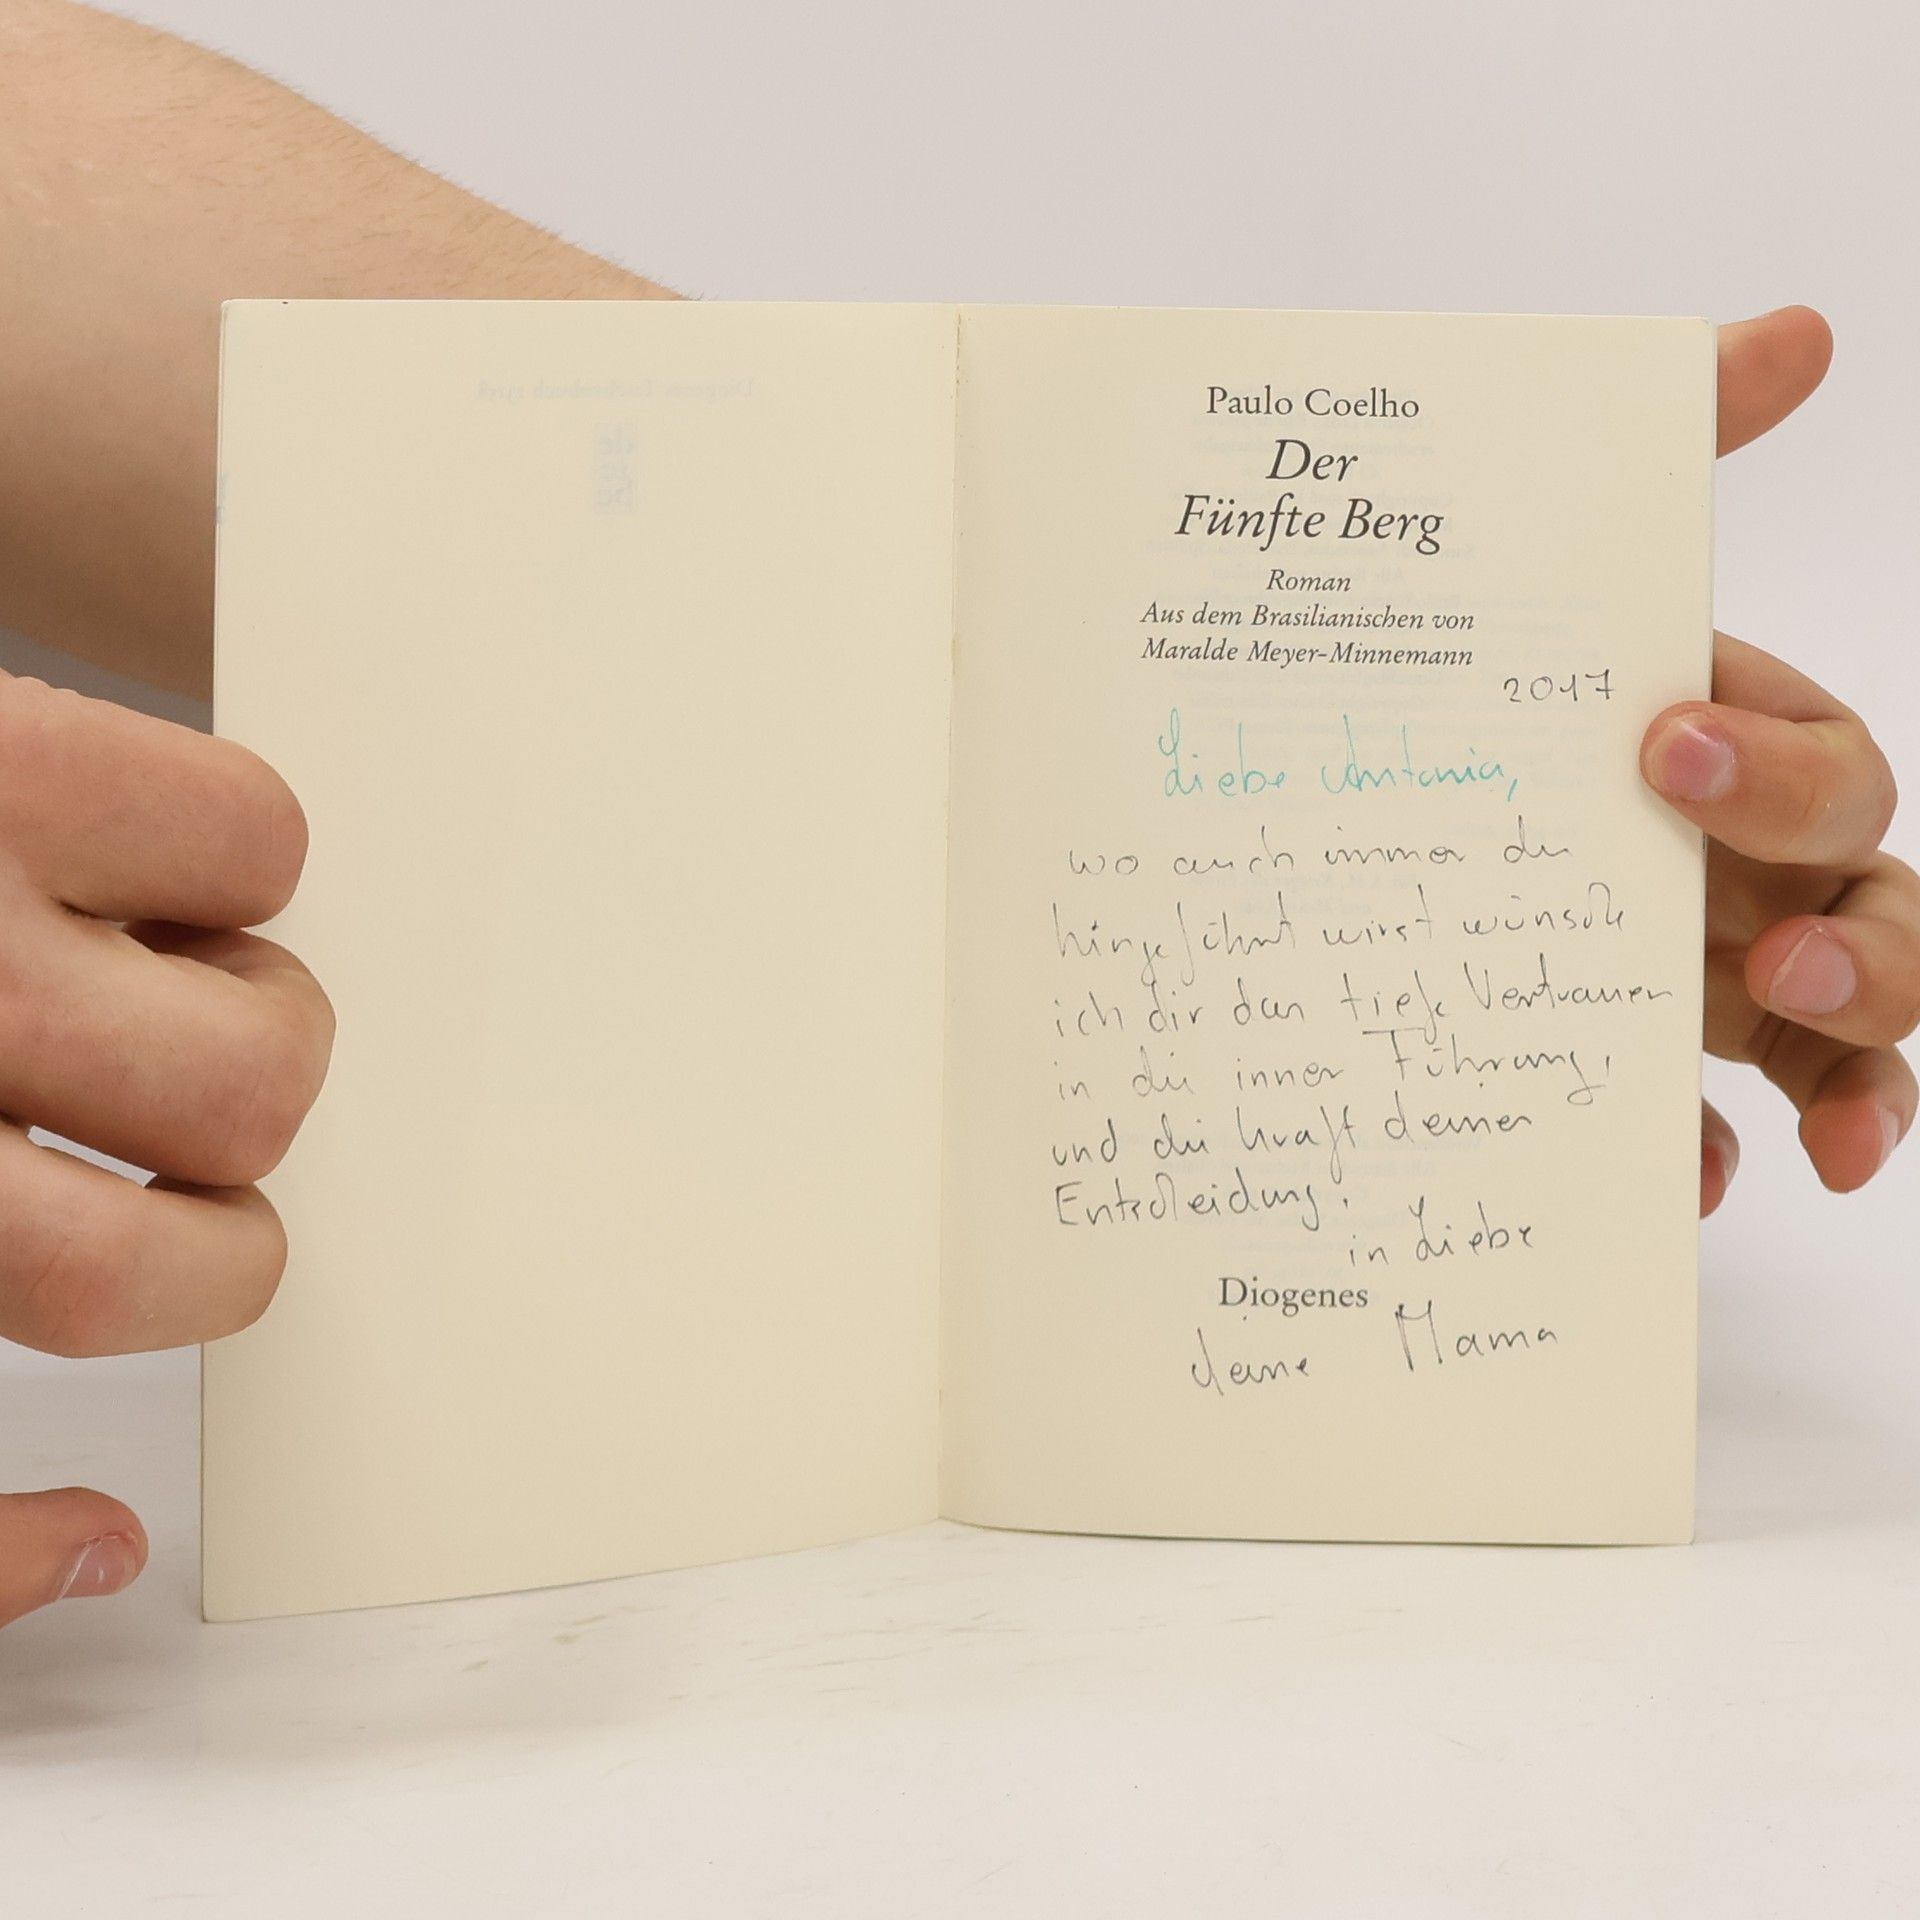 Paulo Coelho
Der
Fünfte Berg
Roman
Aus dem Brasilianischen von
Maralde Meyer-Minnemann
2017
Liebe Antonia,
wo auch immer du
hingeführt wirst wünsche
ich dir das tiefe Vertrauen
in die innere Führung,
und die Kraft deiner
Entscheidung.
in Liebe
Diogenes
deine Mama